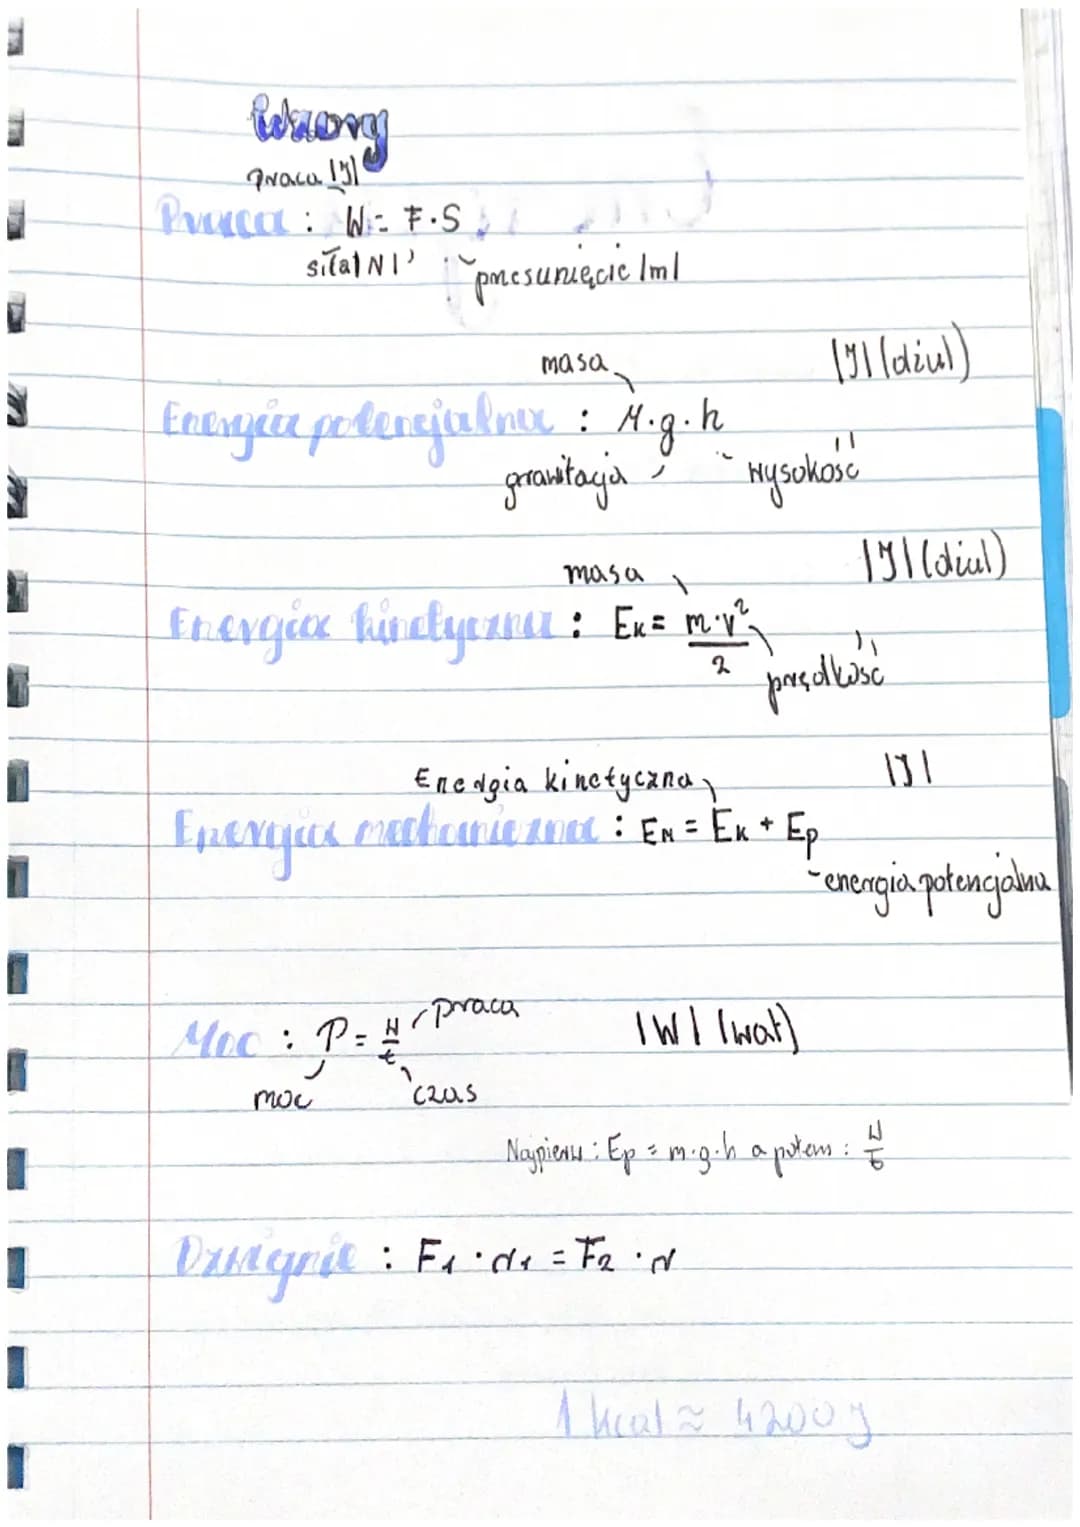 Wzory
praca |J|
Praca : W = F·S
siła |N| przesunięcie |m|
masa |J| (dżul)
Energia potencjalna : M·g·h
grawitacja wysokość
masa |J| (dżul)
Energia kinetyczna : Ek = m·v²/2
prędkość
Energia kinetyczna |J|
Energia mechaniczna : EM = Ek + Ep
energia potencjalna
praca |W| (wat)
Moc : P = W/t
moc czas
Najpierw : Ep = m·g·h a potem : W/t
Dźwignie : F1 · r1 = F2 · r
1 kcal ≈ 4200 J